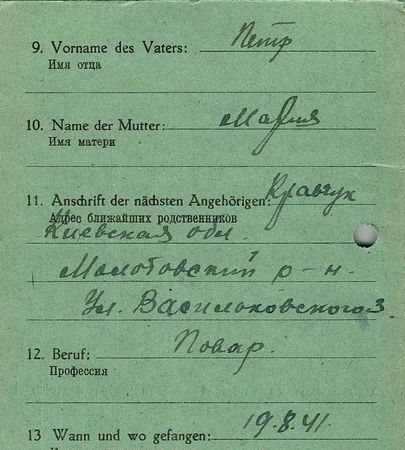 9. Vorname des Vaters: Петр
Имя отца
10. Name der Mutter: Мария
Имя матери
11. Anschrift der nächsten Angehörigen: Кравчук
Адрес ближайших родственников
Киевская обл.
Молотовский р-н.
Ул. Васильковского 3
12. Beruf: Повар.
Профессия
13 Wann und wo gefangen: 19.8.41